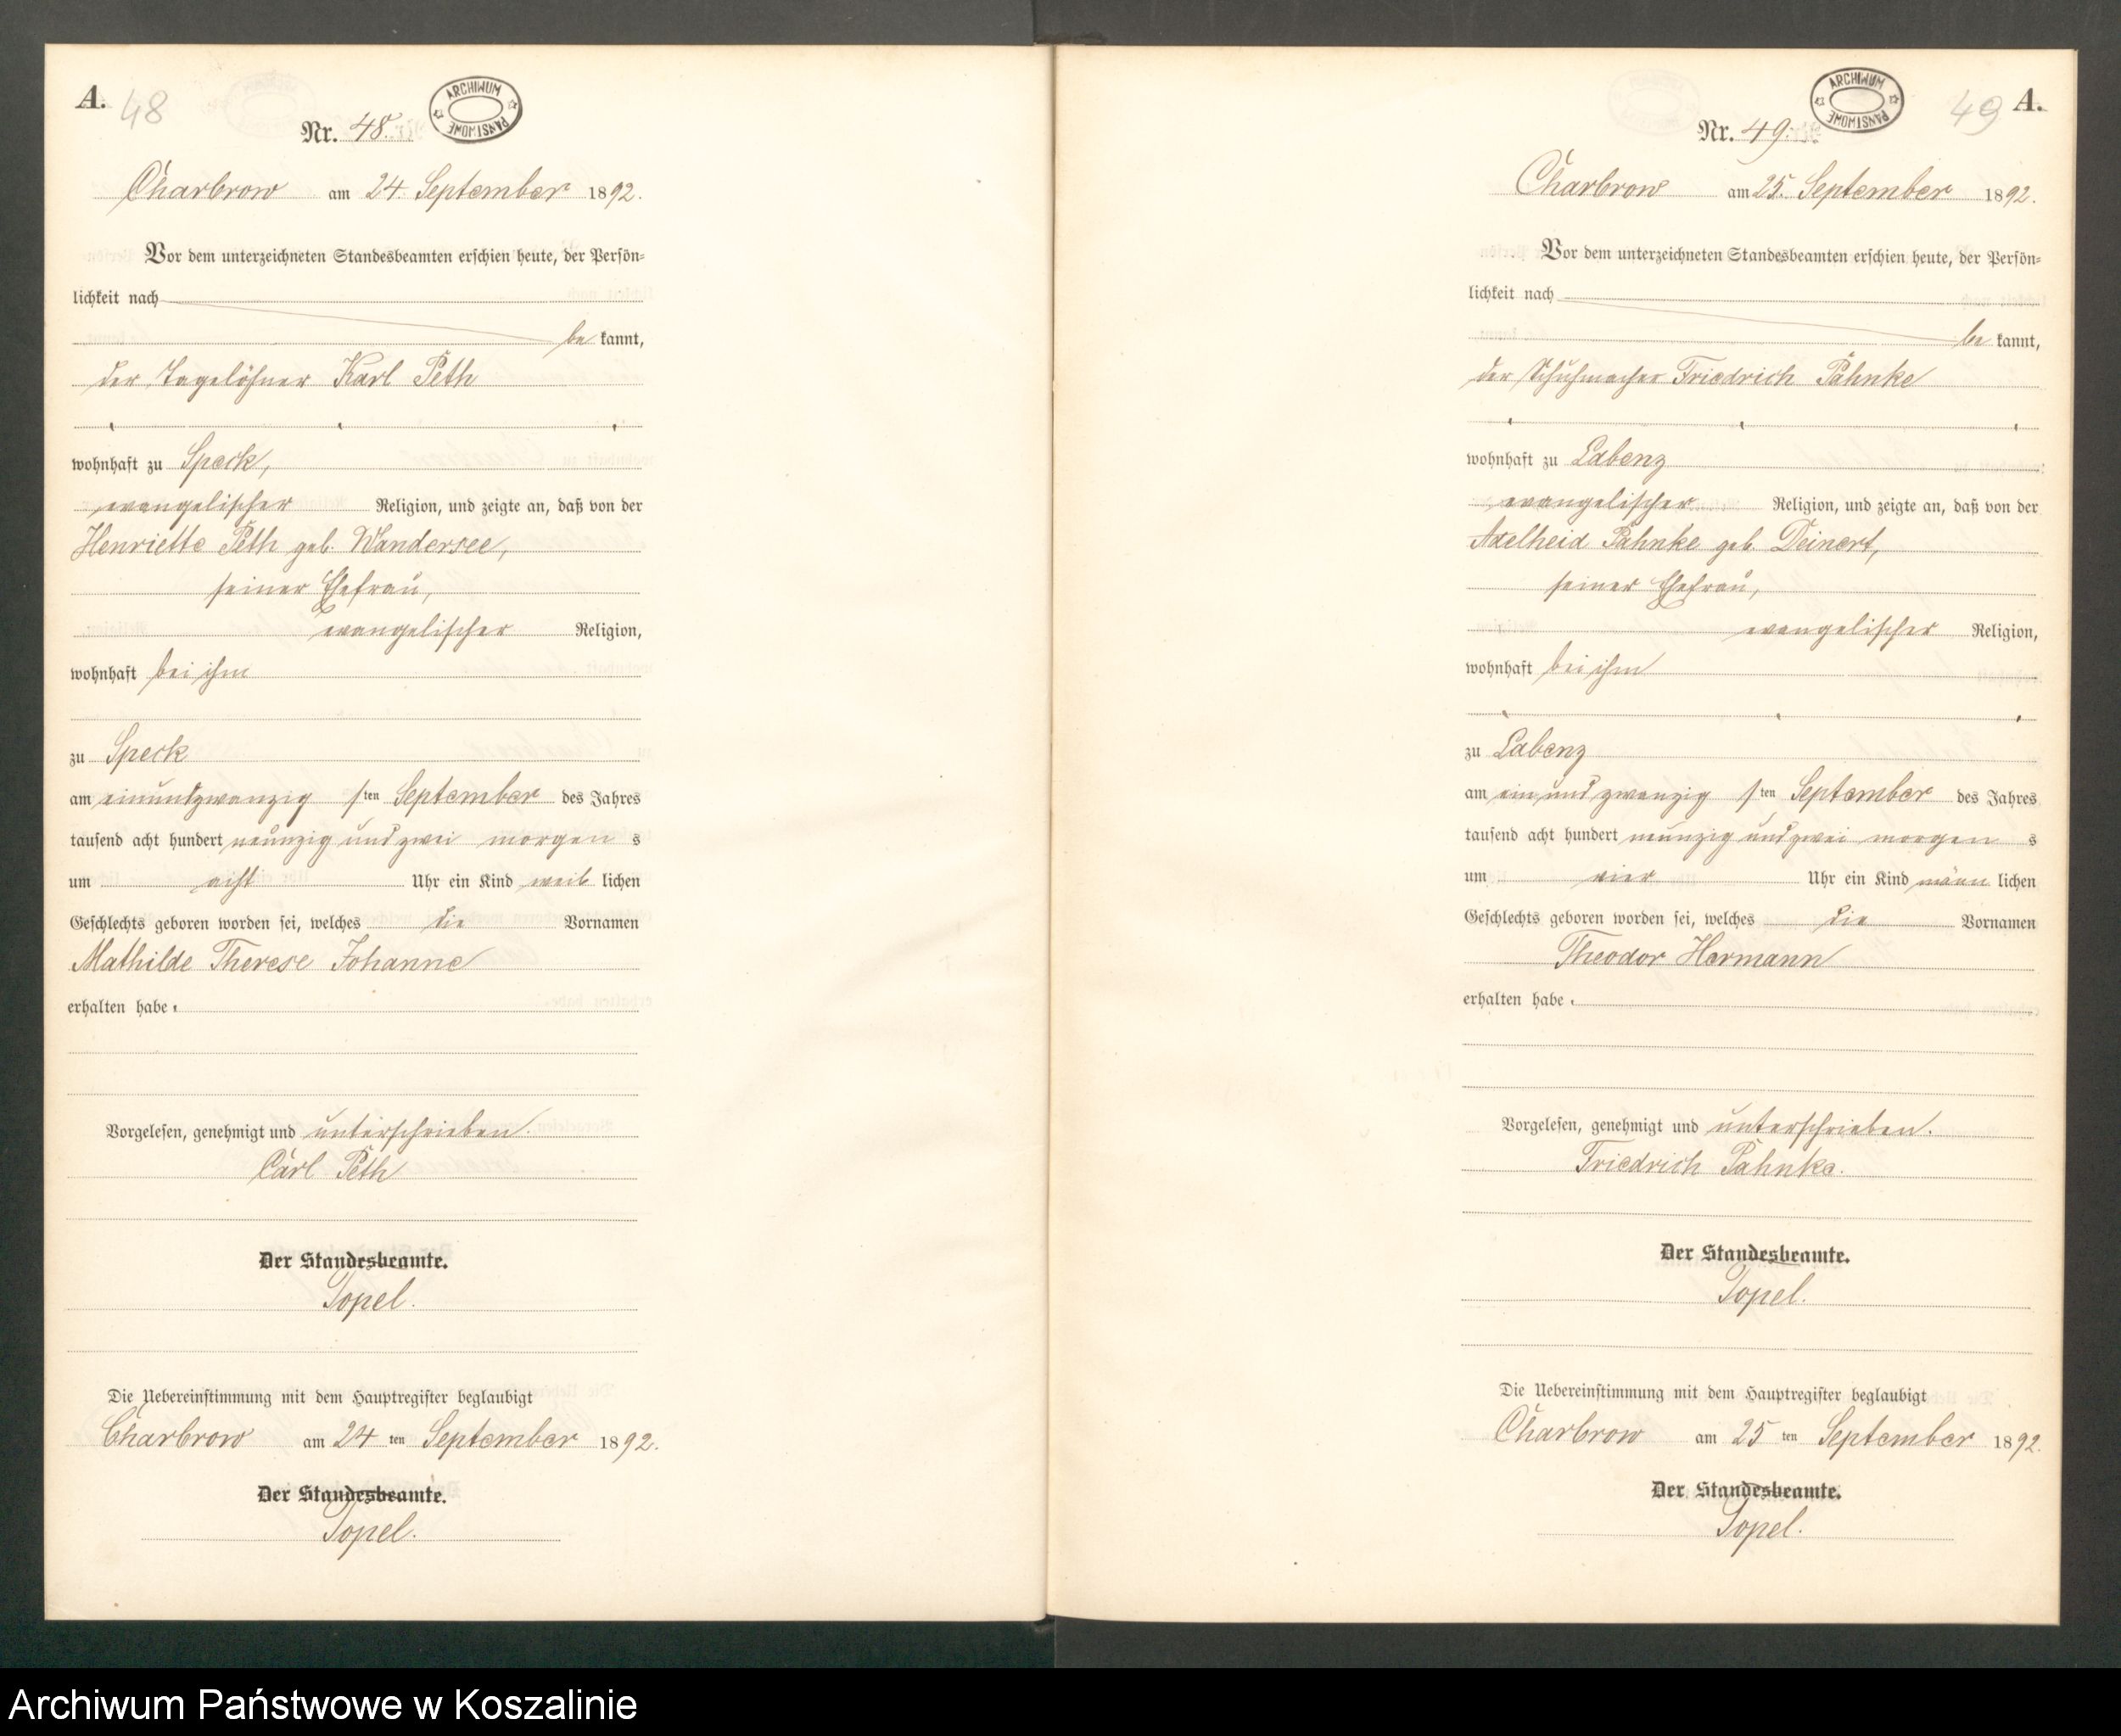 A. 48
ARCHIWUM PAŃSTWOWE
Nr. 48.
Charbrow am 24. September 1892.
Vor dem unterzeichneten Standesbeamten erschien heute, der Persön-
lichkeit nach
be kannt,
der Tagelöhner Karl Peth
wohnhaft zu Speck,
evangelischer Religion, und zeigte an, daß von der
Henriette Peth geb. Wandersee,
seiner Ehefrau,
evangelischer Religion,
wohnhaft bei ihm
zu Speck
am einundzwanzig sten September des Jahres
tausend acht hundert neunzig und zwei morgen s
um acht Uhr ein Kind weib lichen
Geschlechts geboren worden sei, welches die Vornamen
Mathilde Therese Johanne
erhalten habe.
Vorgelesen, genehmigt und unterschrieben.
Carl Peth
Der Standesbeamte.
Topel.
Die Uebereinstimmung mit dem Hauptregister beglaubigt
Charbrow am 24 ten September 1892.
Der Standesbeamte.
Topel.
49 A.
ARCHIWUM PAŃSTWOWE
Nr. 49.
Charbrow am 25. September 1892.
Vor dem unterzeichneten Standesbeamten erschien heute, der Persön-
lichkeit nach
be kannt,
der Schuhmacher Friedrich Pahnke
wohnhaft zu Labenz
evangelischer Religion, und zeigte an, daß von der
Adelheid Pahnke geb. Deinert,
seiner Ehefrau,
evangelischer Religion,
wohnhaft bei ihm
zu Labenz
am ein und zwanzig sten September des Jahres
tausend acht hundert neunzig und zwei morgen s
um vier Uhr ein Kind männ lichen
Geschlechts geboren worden sei, welches die Vornamen
Theodor Hermann
erhalten habe.
Vorgelesen, genehmigt und unterschrieben.
Friedrich Pahnke.
Der Standesbeamte.
Topel.
Die Uebereinstimmung mit dem Hauptregister beglaubigt
Charbrow am 25 ten September 1892.
Der Standesbeamte.
Topel.
Archiwum Państwowe w Koszalinie